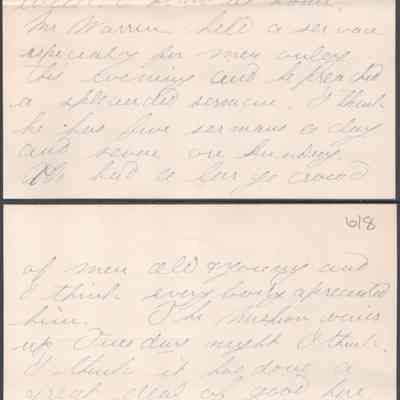 Mr Warren held a servace
especialy for men onley
this evening and he preached
a splended sermon. I think
he has five sermons a day
and seven on Sundays.
He had a large crowd
6/8
of men old & young and
I think everybody apreciated
him. The mission winds
up Tuesday night I think.
I think it has done a
great deal of good here